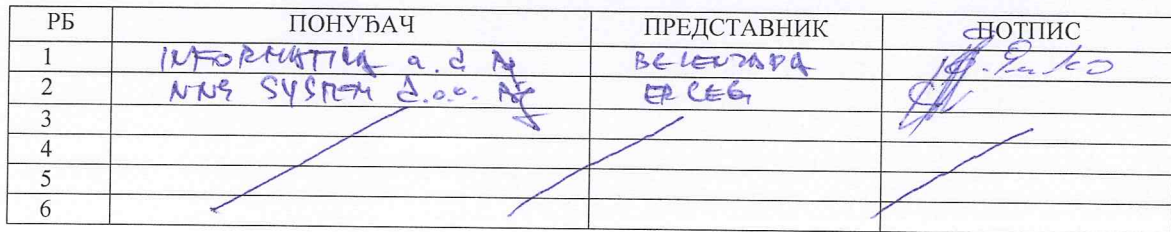 РБ ПОНУЂАЧ ПРЕДСТАВНИК ПОТПИС
1 INFORMATIKA a.d.
2 NNS SYSTEM d.o.o. ERCEG
3
4
5
6